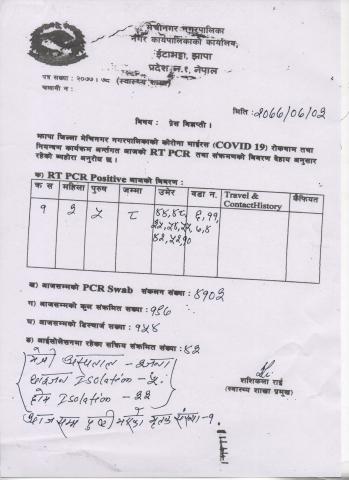 मेचीनगर नगरपालिका
नगर कार्यपालिकाको कार्यालय,
ईटाभट्टा, झापा
प्रदेश नं.१, नेपाल
पत्र संख्या : २०७७।७८ (स्वास्थ्य शाखा)
चलानी नं :
मिति :२०७७/०६/०२
विषय : प्रेस विज्ञप्ती।
झापा जिल्ला मेचिनगर नगरपालिकाको कोरोना भाईरस (COVID 19) रोकथाम तथा
नियन्त्रण कार्यक्रम अर्न्तगत आजको RT PCR तथा संक्रमणको विवरण देहाय अनुसार
रहेको व्यहोरा अनुरोध छ।
क) RT PCR Positive आजको विवरण :
क्र स महिला पुरुष जम्मा उमेर वडा न. Travel & ContactHistory कैफियत
१ ३ ५ ८
ख) आजसम्मको PCR Swab संकलन संख्या : ४९०३
ग) आजसम्मको कूल संक्रमित संख्या :
घ) आजसम्मको डिस्चार्ज संख्या : १५४
ङ) आईसोलेसनमा रहेका सक्रिय संक्रमित संख्या : ४२
मेची अस्पताल -
Isolation - ५
होम Isolation - २२
आज सम्म मृतक संख्या - १
शशिकला राई
(स्वास्थ्य शाखा प्रमुख)